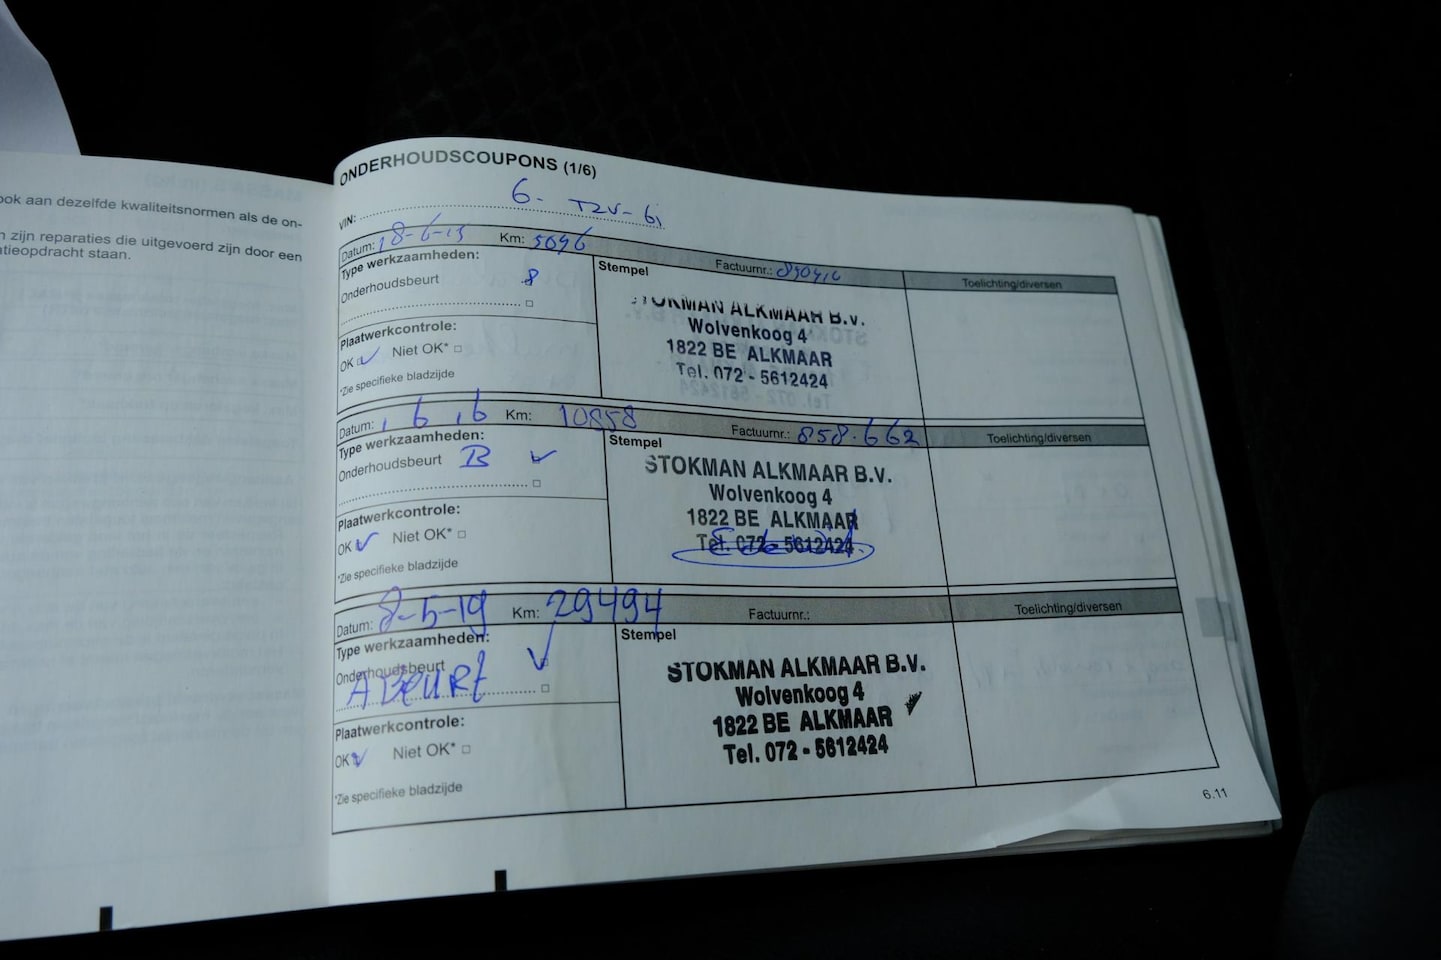 ook aan dezelfde kwaliteitsnormen als de on-
n zijn reparaties die uitgevoerd zijn door een
tieopdracht staan.
ONDERHOUDSCOUPONS (1/6)
VIN: 6- TZV-61
Datum: 18-6-15 Km: 5096 Factuurnr.: Toelichting/diversen
Type werkzaamheden:
Onderhoudsbeurt
Plaatwerkcontrole:
OK Niet OK*
*Zie specifieke bladzijde
Stempel
STOKMAN ALKMAAR B.V.
Wolvenkoog 4
1822 BE ALKMAAR
Tel. 072 - 5612424
Datum: 1 6 16 Km: 10858 Factuurnr.: 858.662 Toelichting/diversen
Type werkzaamheden:
Onderhoudsbeurt B
Plaatwerkcontrole:
OK Niet OK*
*Zie specifieke bladzijde
Stempel
STOKMAN ALKMAAR B.V.
Wolvenkoog 4
1822 BE ALKMAAR
Tel. 072 - 5612424
Datum: 8-5-19 Km: 29494 Factuurnr.: Toelichting/diversen
Type werkzaamheden:
Onderhoudsbeurt
A BEURT
Plaatwerkcontrole:
OK Niet OK*
*Zie specifieke bladzijde
Stempel
STOKMAN ALKMAAR B.V.
Wolvenkoog 4
1822 BE ALKMAAR
Tel. 072 - 5612424
6.11